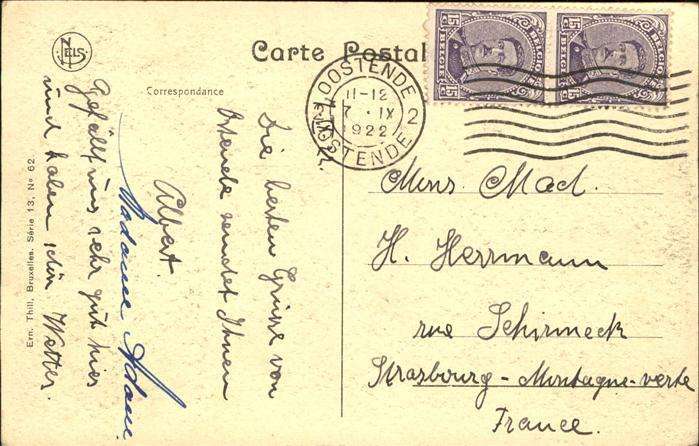 NELS
Carte Postal
Correspondance
Die besten Grüsse von
Ostende sendet Ihnen
Albert.
Madame Adam.
Gefällt uns sehr gut hier
und haben schön Wetter.
Ern. Thill, Bruxelles. Série 13, No 62.
15 BELGIE BELGIQUE 15
15 BELGIE BELGIQUE 15
OOSTENDE 2
11-12
7 · IX
1922
OOSTENDE
Mons Mad.
H. Herrmann
rue Schirmeck
Strasbourg - Montagne-verte
France.